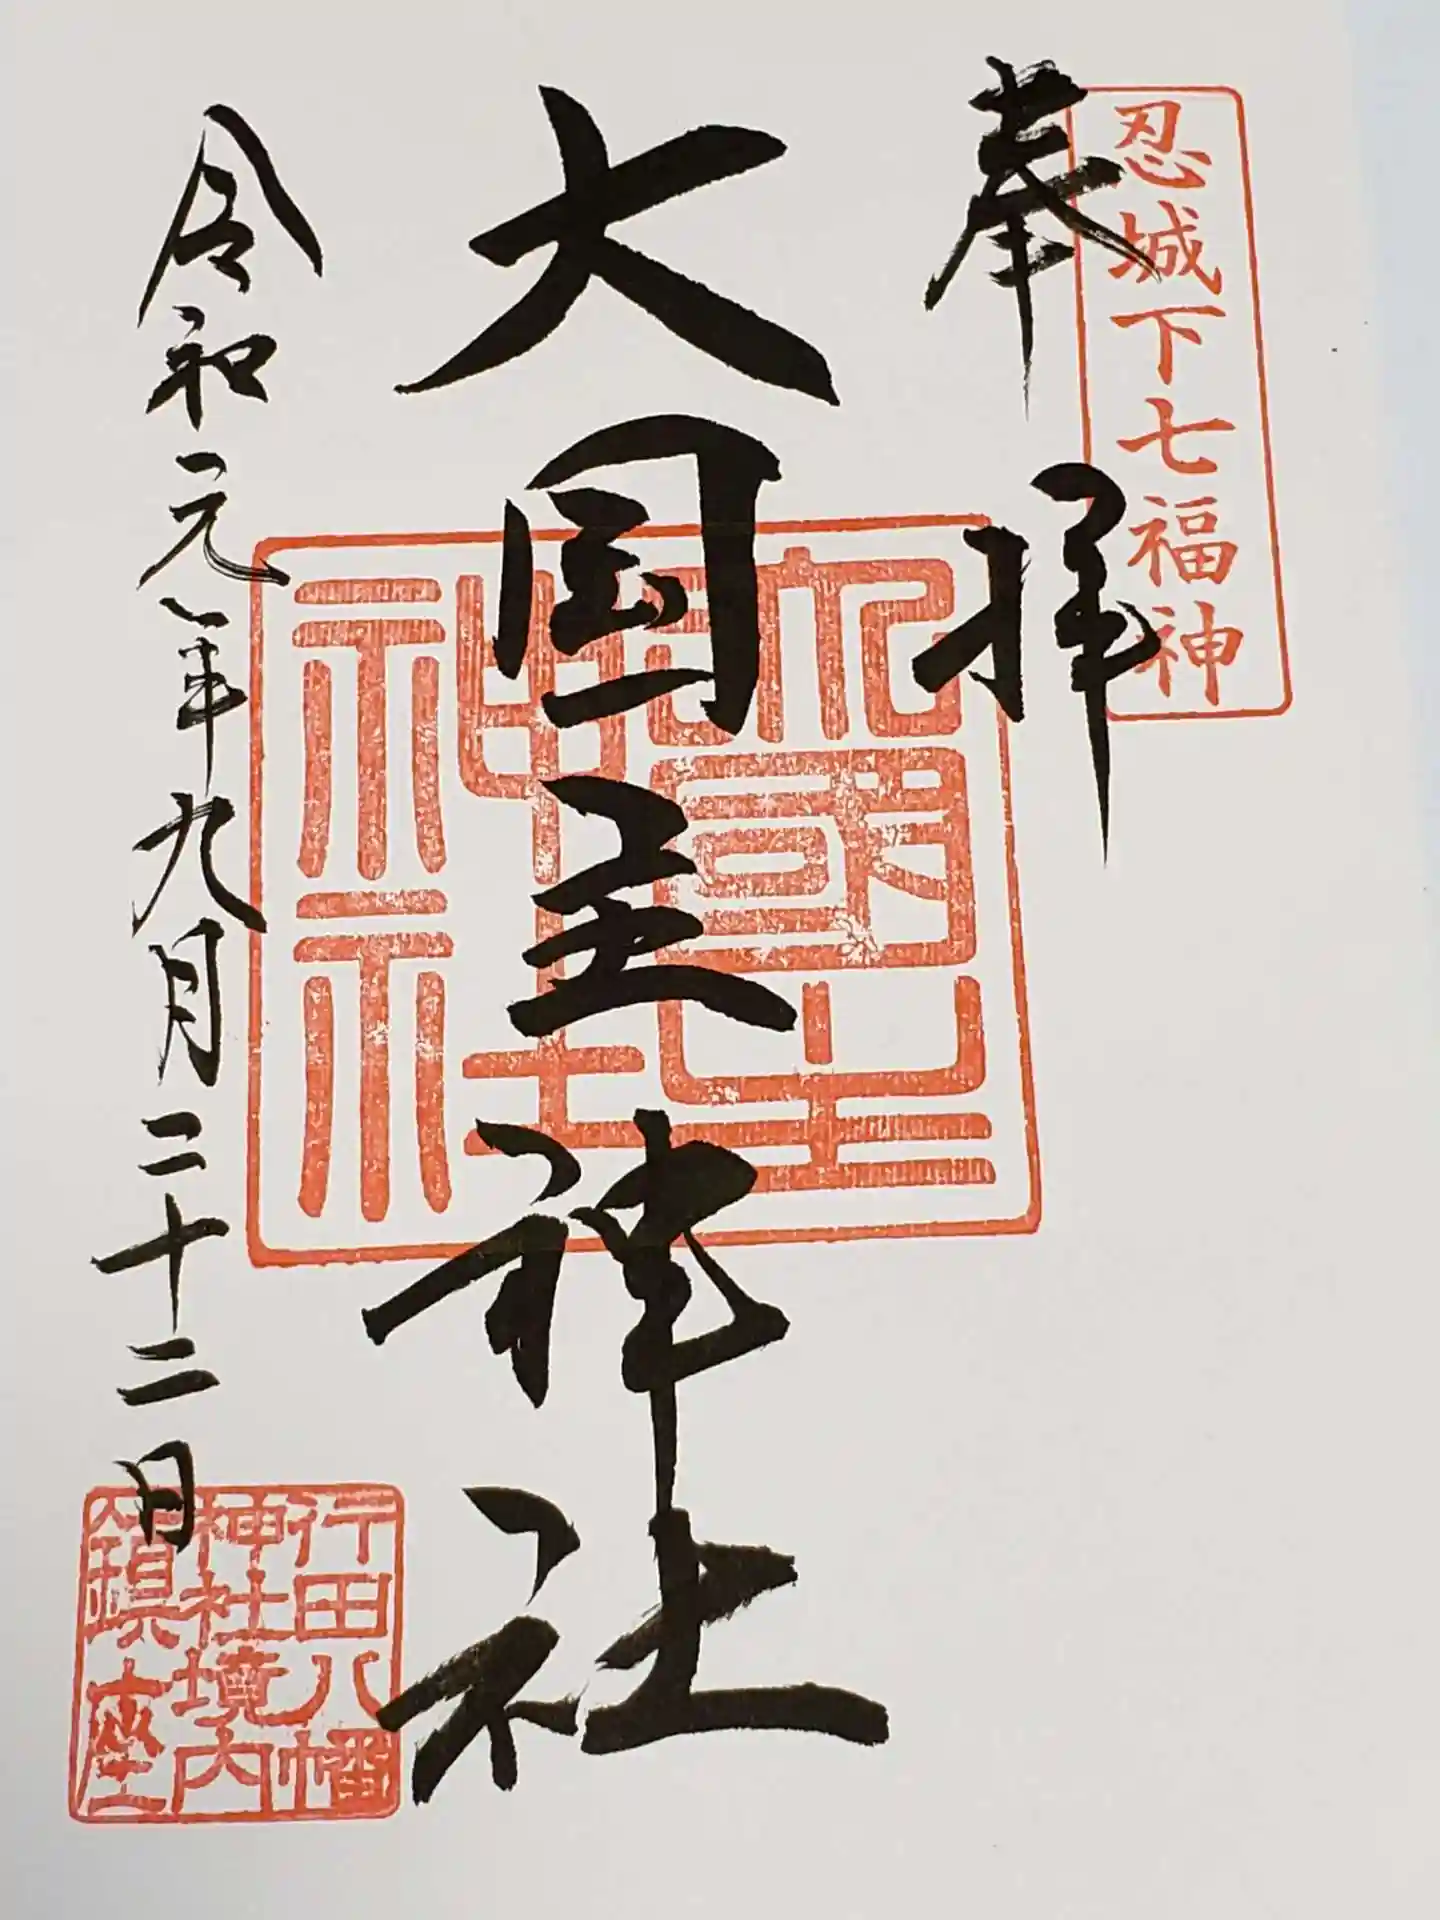 忍城下七福神
奉拝
大国主神社
大國主
神社
令和元年九月二十二日
行田八幡
神社境内
鎮座